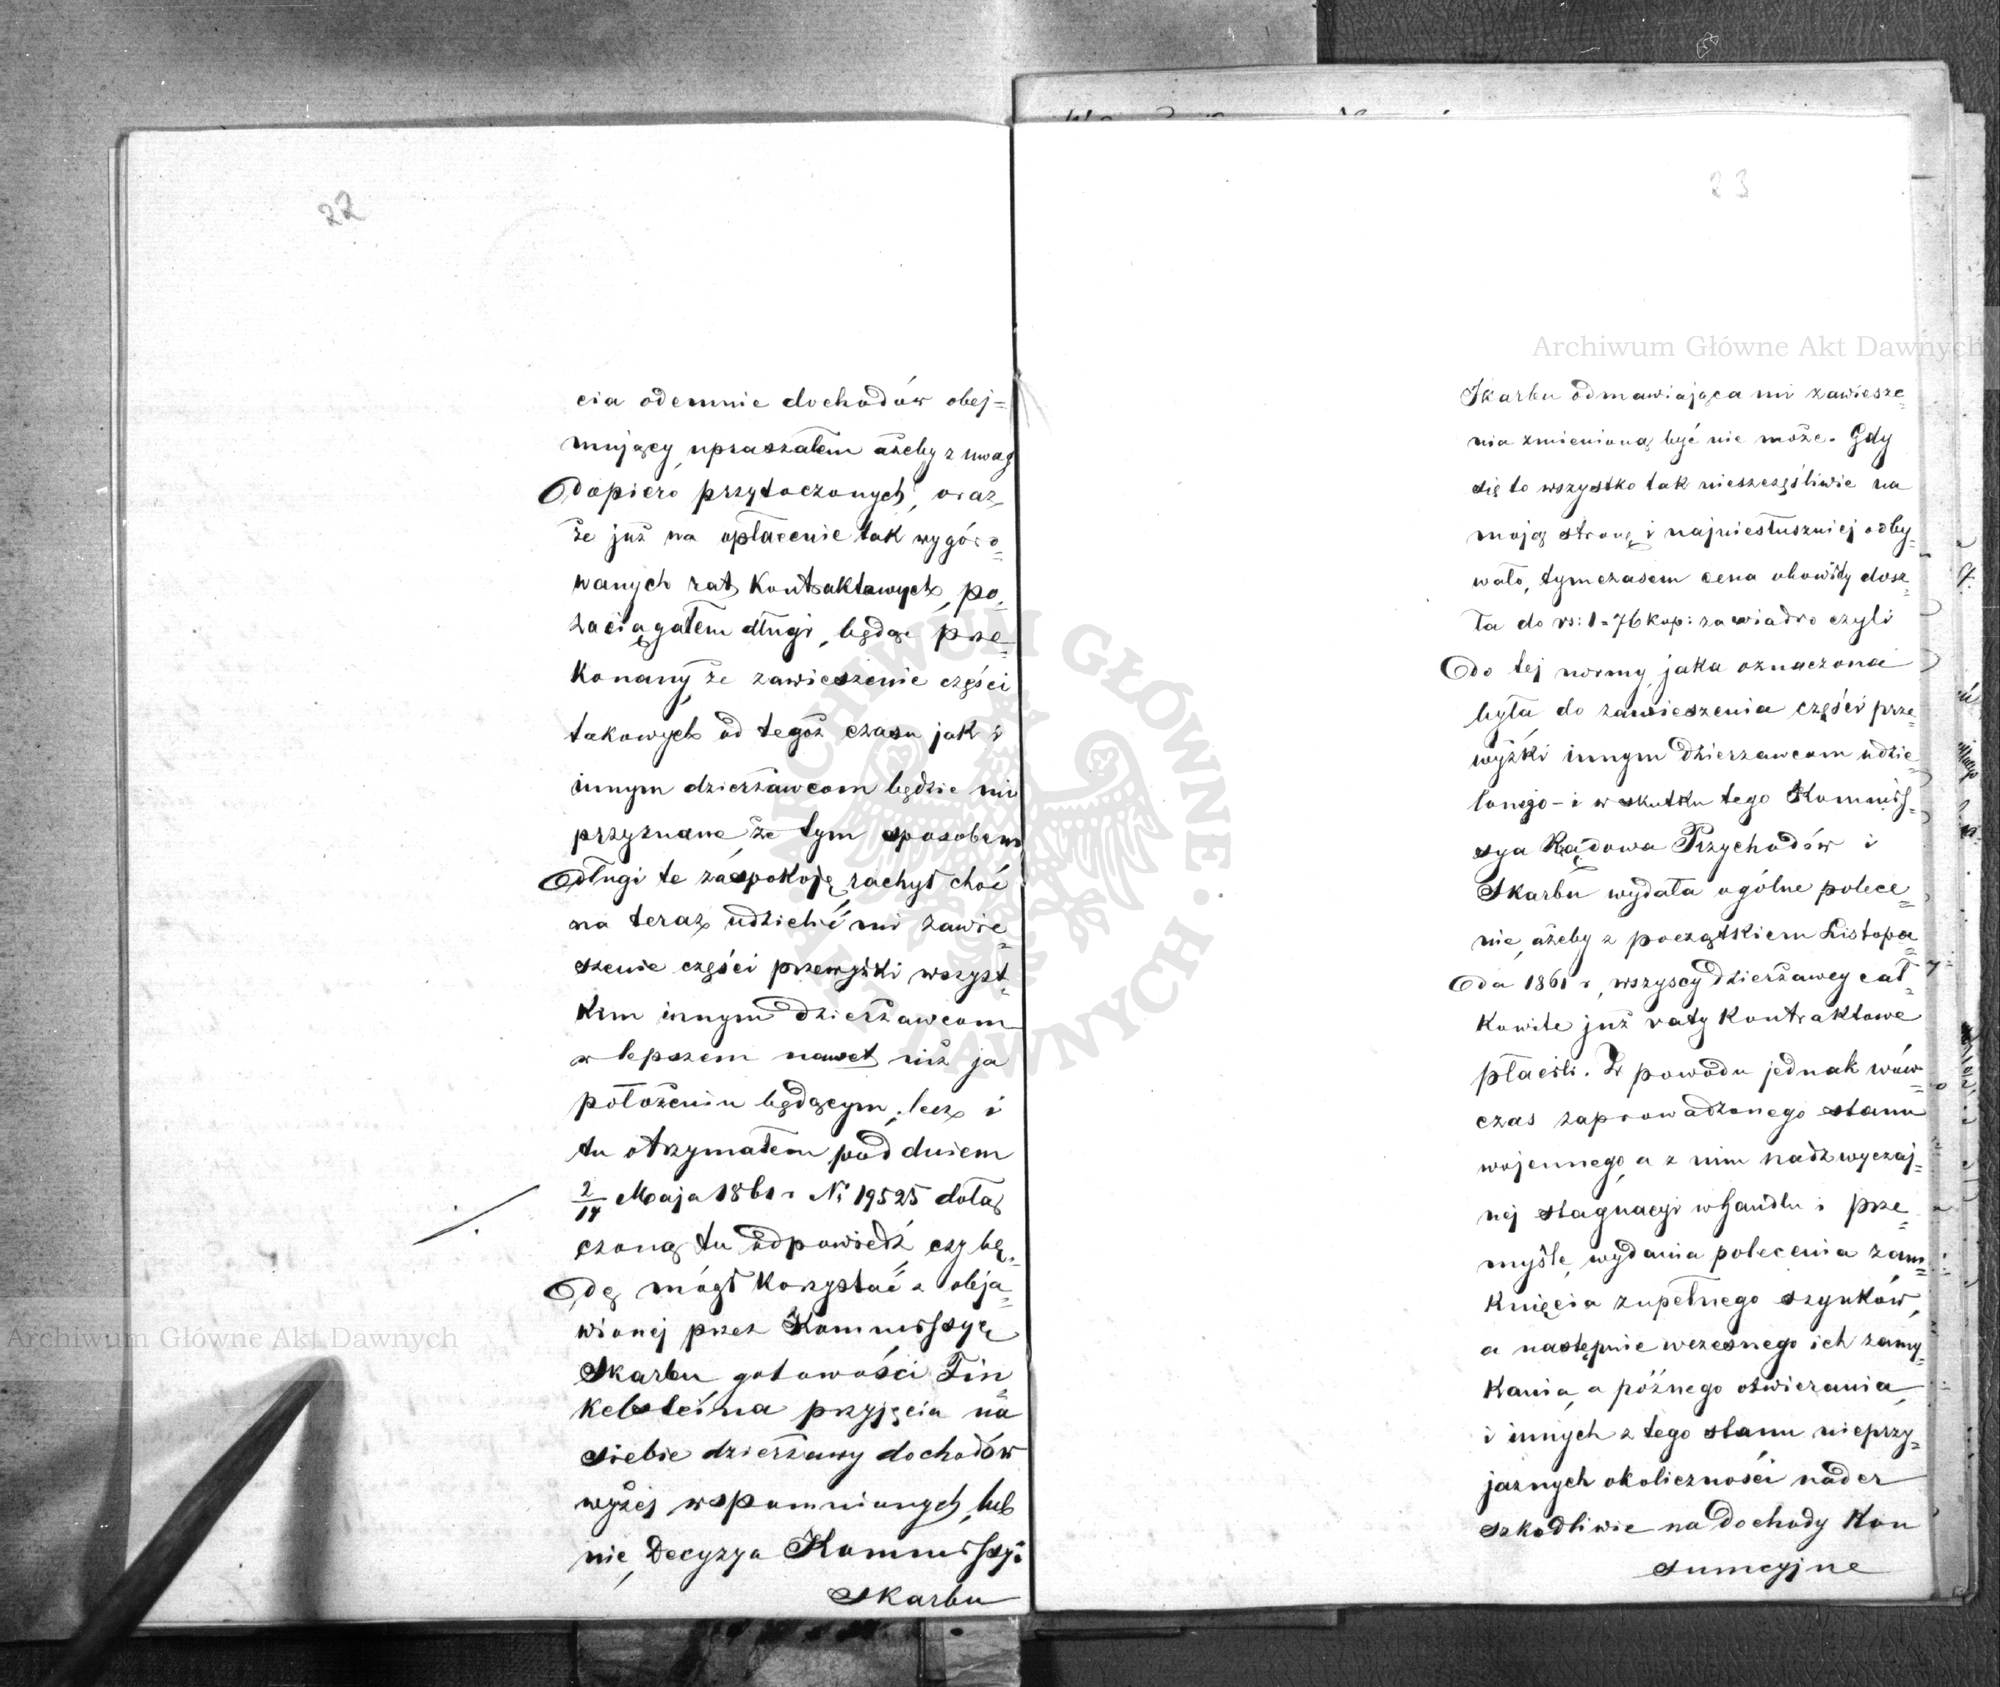 22
cia odemnie dochodów obej=
mujący, upraszałem ażeby z uwag
dopiero przytoczonych, oraz,
że już na opłacenie tak wygóro=
wanych rat Kontraktowych, po=
zaciągałem długi, będąc prze=
konany że zawieszenie części
takowych od tegoż czasu jak i
innym dzierżawcom będzie mi
przyznane, że tym sposobem
długi te zaspokoję, rachył choć
na teraz udzielić mi zawie=
szenie części przewyżki wszyst=
kim innym dzierżawcom
w lepszem nawet niż ja
położeniu będącym, lecz i
tu otrzymałem pod dniem
2/14 Maja 1861 r № 19525 dołą
czoną tu odpowiedź, czy bę=
dę mógł korzystać z obja=
wionej przez Kommissyę
Skarbu gotowości Fin
kelsteina przyjęcia na
siebie dzierżawy dochodów
wyżej wspomnionych, lub
nie, Decyzya Kommissyi
Skarbu
23
Skarbu odmawiająca mi zawiesze=
nia zmienioną być nie może. Gdy
się to wszystko tak nieszczęśliwie na
moją stronę i najniesłuszniej odby=
wało, tymczasem cena okowity dosz=
ła do rs: 1 = 76 kop: za wiadro czyli
do tej normy jaka oznaczona
była do zawieszenia części prze=
wyżki innym dzierżawcom udzie=
lonego - i w skutku tego Kommis=
sya Rządowa Przychodów i
Skarbu wydała ogólne polece=
nie, ażeby z początkiem Listopa=
da 1861 r, wszyscy dzierżawcy cał=
kowite już raty Kontraktowe
płacili. Z powodu jednak wów=
czas zaprowadzonego stanu
wojennego, a z nim nadzwyczaj=
nej stagnacyi w handlu i prze=
myśle, wydania polecenia zam=
knięcia zupełnego szynków,
a następnie wczesnego ich zamy=
kania, a późnego otwierania,
i innych z tego stanu nieprzy=
jaznych okoliczności nader
szkodliwie na dochody Kon
sumcyjne
Archiwum Główne Akt Dawnych
Archiwum Główne Akt Dawnych
ARCHIWUM GŁÓWNE · AKT DAWNYCH ·